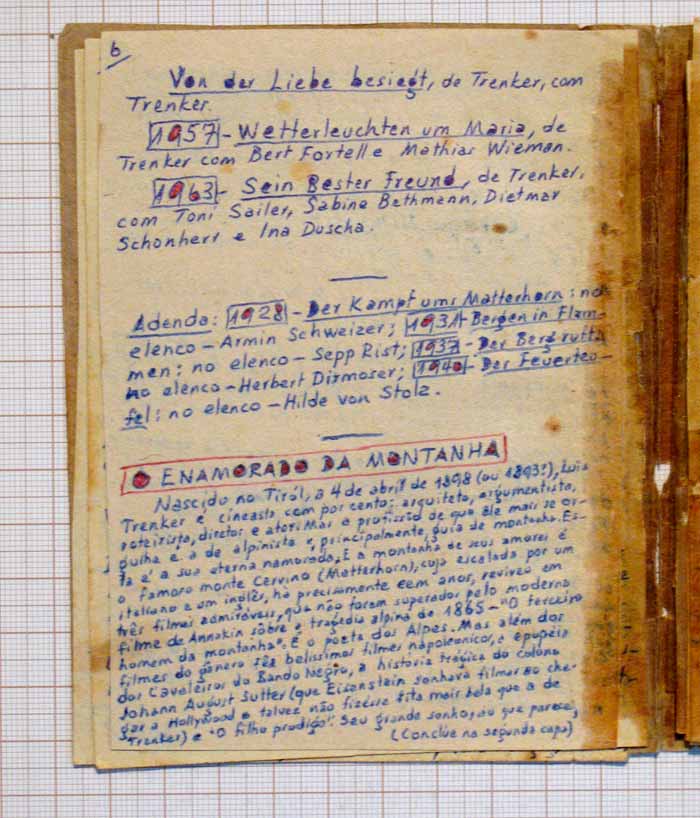 6
Von der Liebe besiegt, de Trenker, com
Trenker.
1957 - Wetterleuchten um Maria, de
Trenker com Bert Fortell e Mathias Wieman.
1963 - Sein Bester Freund, de Trenker,
com Toni Sailer, Sabine Bethmann, Dietmar
Schonherr e Ina Duscha.
Adenda: 1928 - Der Kampf ums Matterhorn: no
elenco - Armin Schweizer; 1931 - Bergen in Flam-
men: no elenco - Sepp Rist; 1937 - Der Berg rutt:
no elenco - Herbert Dirmoser; 1940 - Der Feuerteu-
fel: no elenco - Hilde von Stolz.
O ENAMORADO DA MONTANHA
Nascido no Tiról, a 4 de abril de 1898 (ou 1893?), Luis
Trenker é cineasta cem por cento: arquiteto, argumentista,
roteirista, diretor e ator. Mas a profissão de que êle mais se or-
gulha é a de alpinista e, principalmente, guia de montanha. Es-
ta é a sua eterna namorada. E a montanha de seus amores é
o famoso monte Cervino (Matterhorn), cuja escalada por um
italiano e um inglês, há precisamente cem anos, reviveu em
três filmes admiráveis, que não foram superados pelo moderno
filme de Annakin sôbre a tragédia alpina de 1865 - "O terceiro
homem da montanha". É o poeta dos Alpes. Mas além dos
filmes do gênero fêz belissimos filmes napoleonicos, a epopéia
dos Cavaleiros do Bando Negro, a historia trágica do colono
Johann August Sutter (que Eisenstein sonhava filmar ao che-
gar a Hollywood e talvez não fizesse fita mais bela que a de
Trenker) e "O filho prodigo". Seu grande sonho, ao que parece,
(Conclúe na segunda capa)